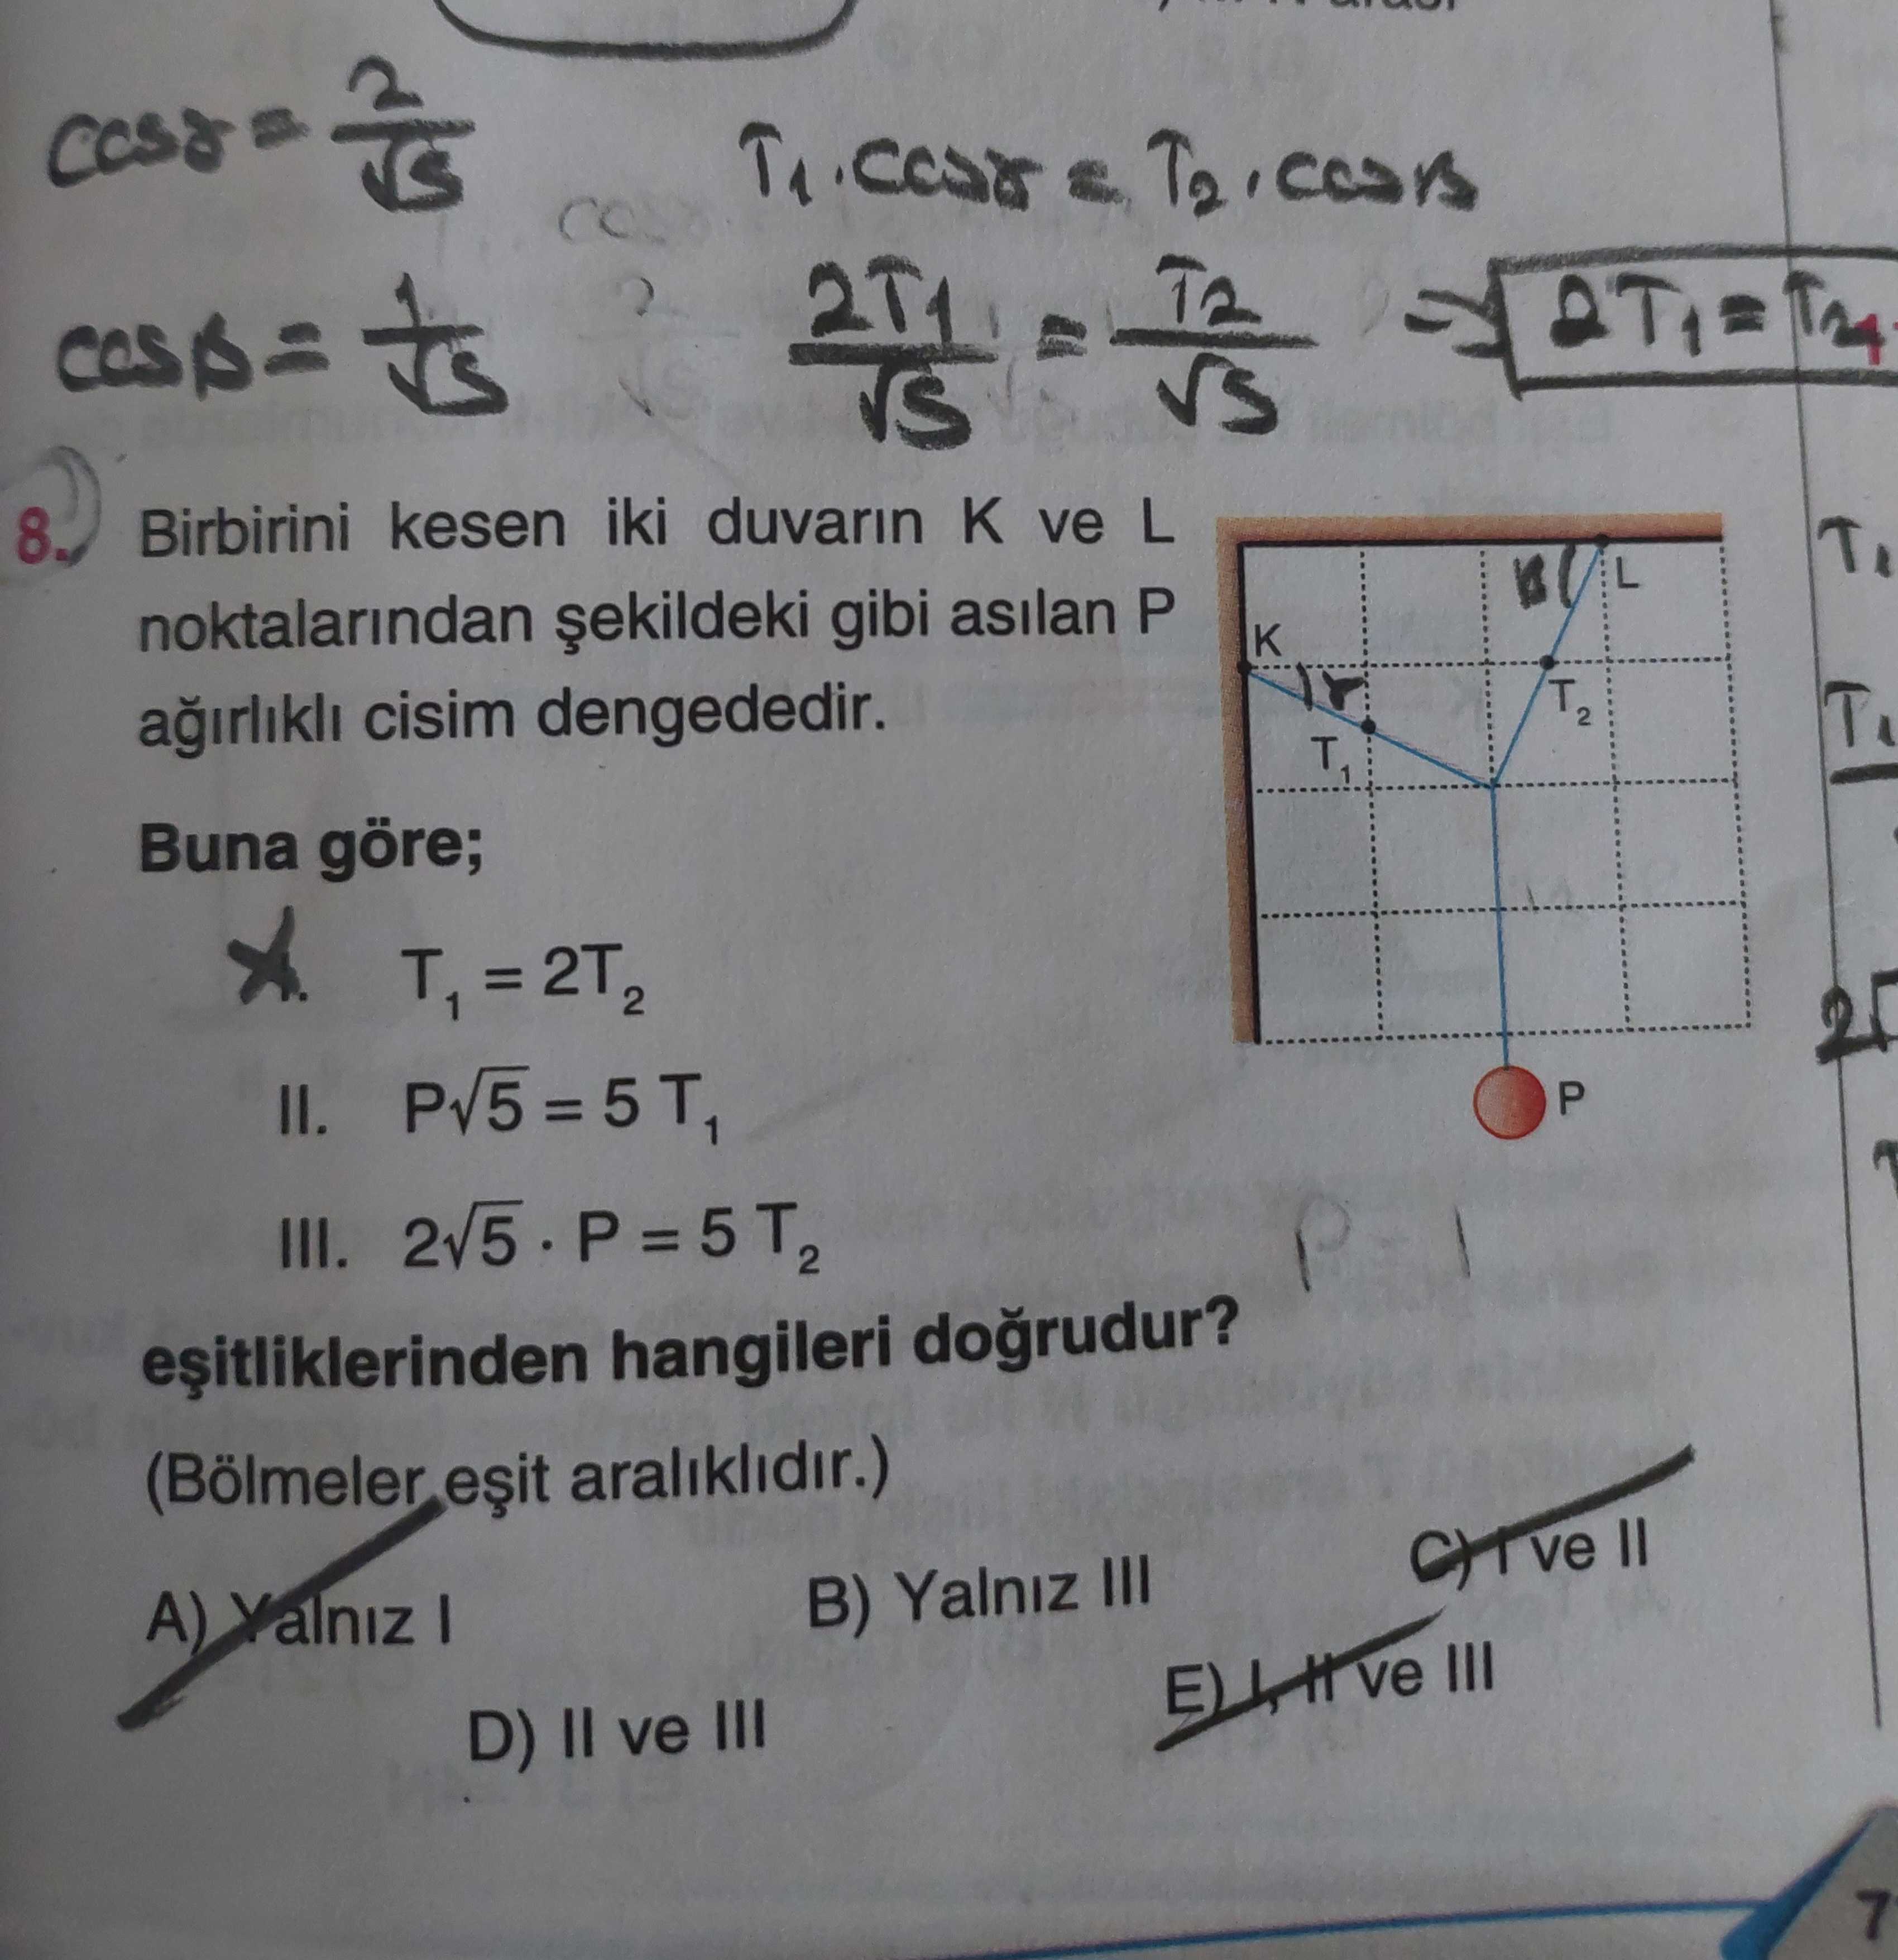 cosγ = 2/√5
T₁.cosγ = T₂.cosβ
cosβ = 1/√5
2T₁/√5 = T₂/√5 ⇒ 2T₁ = T₂
8. Birbirini kesen iki duvarın K ve L
noktalarından şekildeki gibi asılan P
ağırlıklı cisim dengededir.
Buna göre;
I. T₁ = 2T₂
II. P√5 = 5 T₁
III. 2√5 · P = 5 T₂
eşitliklerinden hangileri doğrudur?
(Bölmeler eşit aralıklıdır.)
A) Yalnız I
B) Yalnız III
C) I ve II
D) II ve III
E) I, II ve III
β
L
K
γ
T₂
T₁
P
T₁
T₁
7